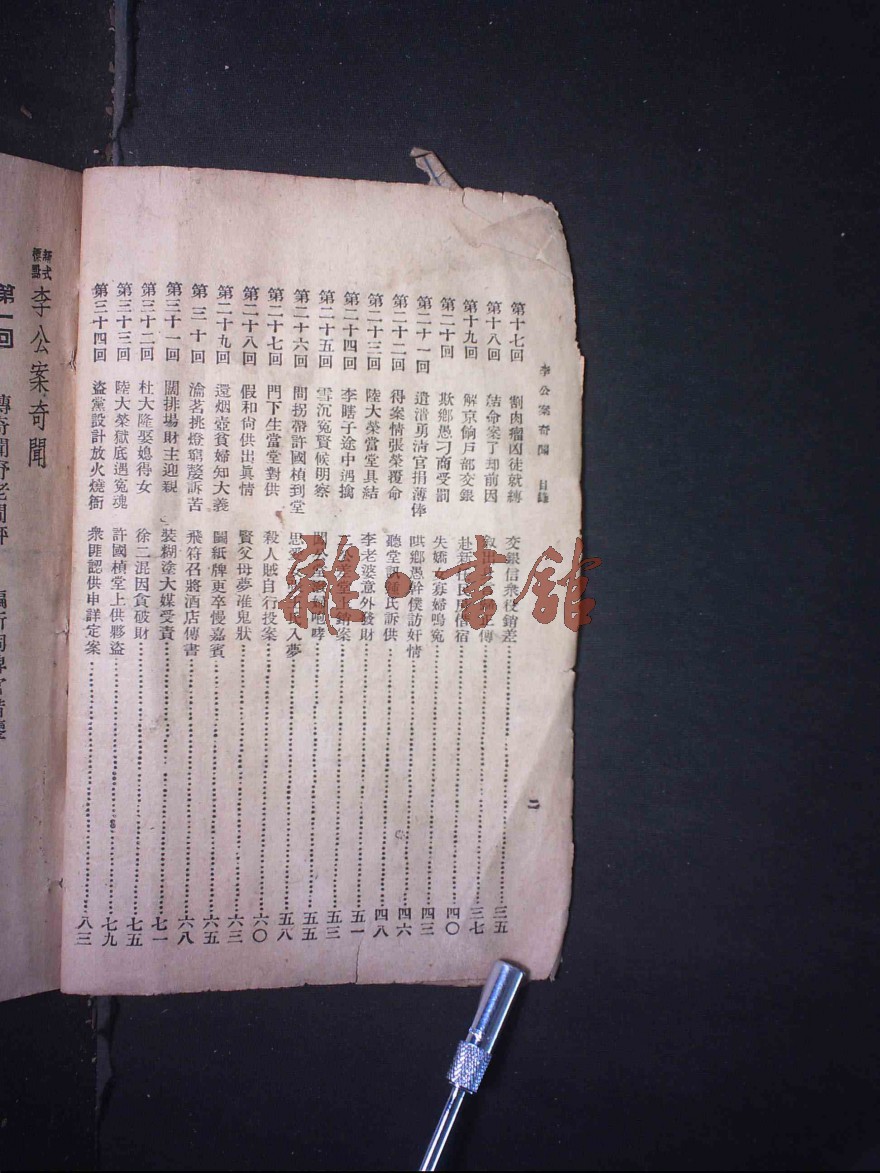 李公案奇聞　目錄
第十七回　割肉瘤凶徒就縛　交銀信衆役銷差……三五
第十八回　結命案了却前因　正傳……三七
第十九回　解京餉戶部交銀　赴 借宿……四〇
第二十回　欺鄉愚刁商受罰　失嬌 寡婦鳴冤……四三
第二十一回　遺潸勇淸官捐薄俸　哄鄉愚幹僕訪奸情……四六
第二十二回　得案情張榮覆命　聽堂訊 氏訴供……四八
第二十三回　陸大榮當堂具結　李老婆意外發財……五一
第二十四回　李瞎子途中遇擒　堂上銷案……五三
第二十五回　雪沉冤賢候明察　咆哮……五五
第二十六回　問拐帶許國楨到堂　思 入夢……五八
第二十七回　門下生當堂對供　殺人賊自行投案……六〇
第二十八回　假和尙供出眞情　賢父母夢准鬼狀……六三
第二十九回　還烟壺貧婦知大義　鬭紙牌更卒慢嘉賓……六五
第三十回　淪茗挑燈窮嫠訴苦　飛符召將酒店傳書……六八
第三十一回　闊排場財主迎親　裝糊塗大媒受責……七一
第三十二回　杜大隆娶媳得女　徐二混因貪破財……七五
第三十三回　陸大榮獄底遇冤魂　許國楨堂上供夥盜……七九
第三十四回　盜黨設計放火燒衙　衆匪認供申詳定案……八三
二
新式標點　李公案奇聞
第一回
雜·書館